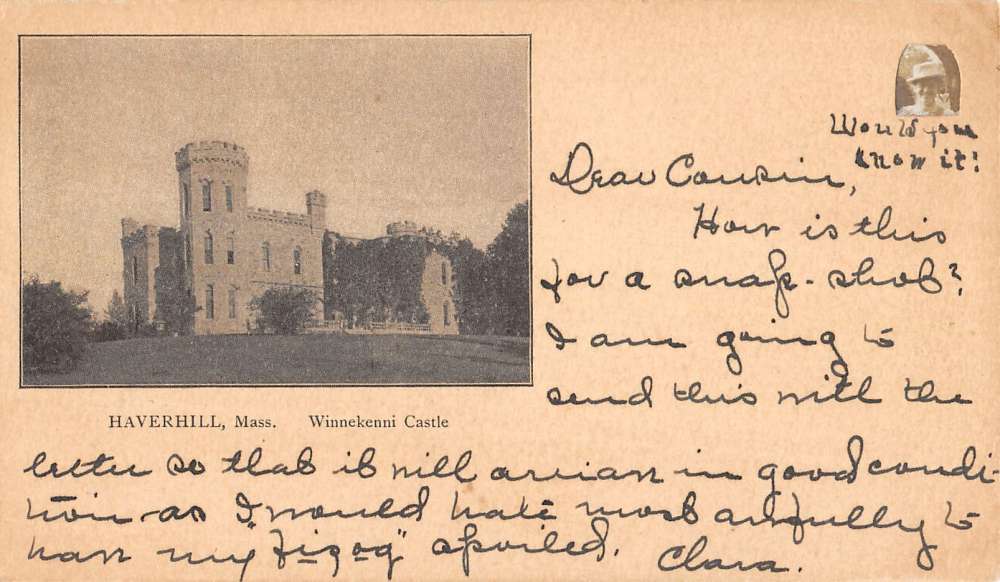 Would you
know it!
Dear Cousin,
How is this
for a snap-shot?
I am going to
send this with the
HAVERHILL, Mass. Winnekenni Castle
letter so that it will arrive in good condi-
tion as I would hate most awfully to
have my "fizog" spoiled. Clara.